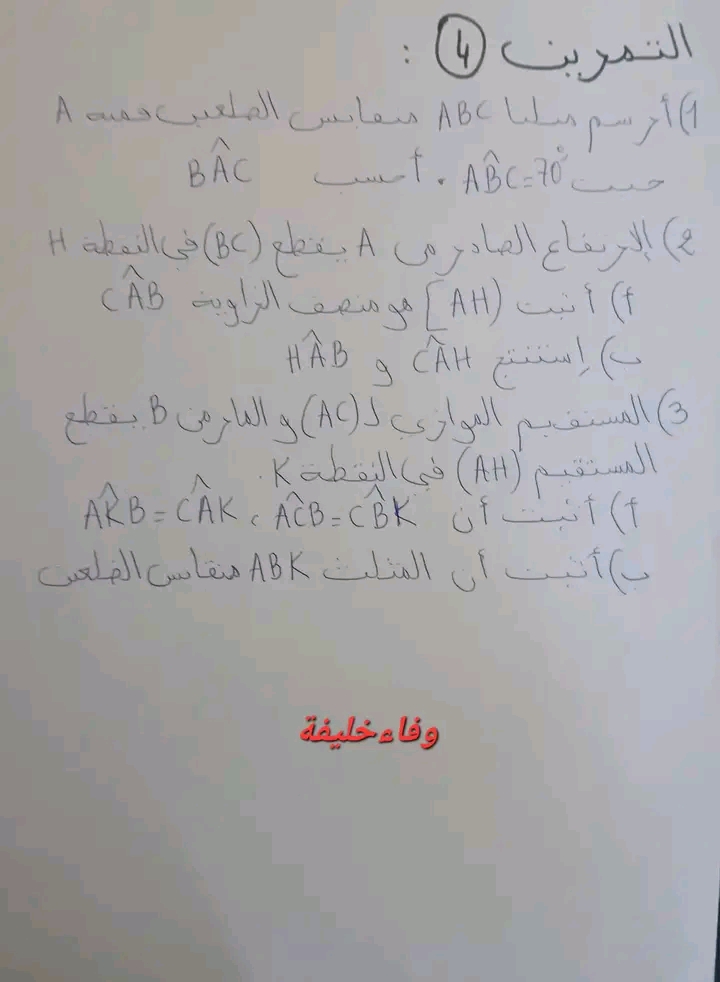 التمرين 4 :
1) أرسم مثلثا ABC متقايس الضلعين قمته A
حيث ABC=70° . أحسب BAC
2) الإرتفاع الصادر من A يقطع (BC) في النقطة H
أ) أثبت [AH) هو منصف الزاوية CAB
ب) إستنتج CAH و HAB
3) المستقيم الموازي لـ (AC) و المار من B يقطع
المستقيم (AH) في النقطة K.
أ) أثبت أن ACB=CBK ، AKB=CAK
ب) أثبت أن المثلث ABK متقايس الضلعين
وفاء خليفة